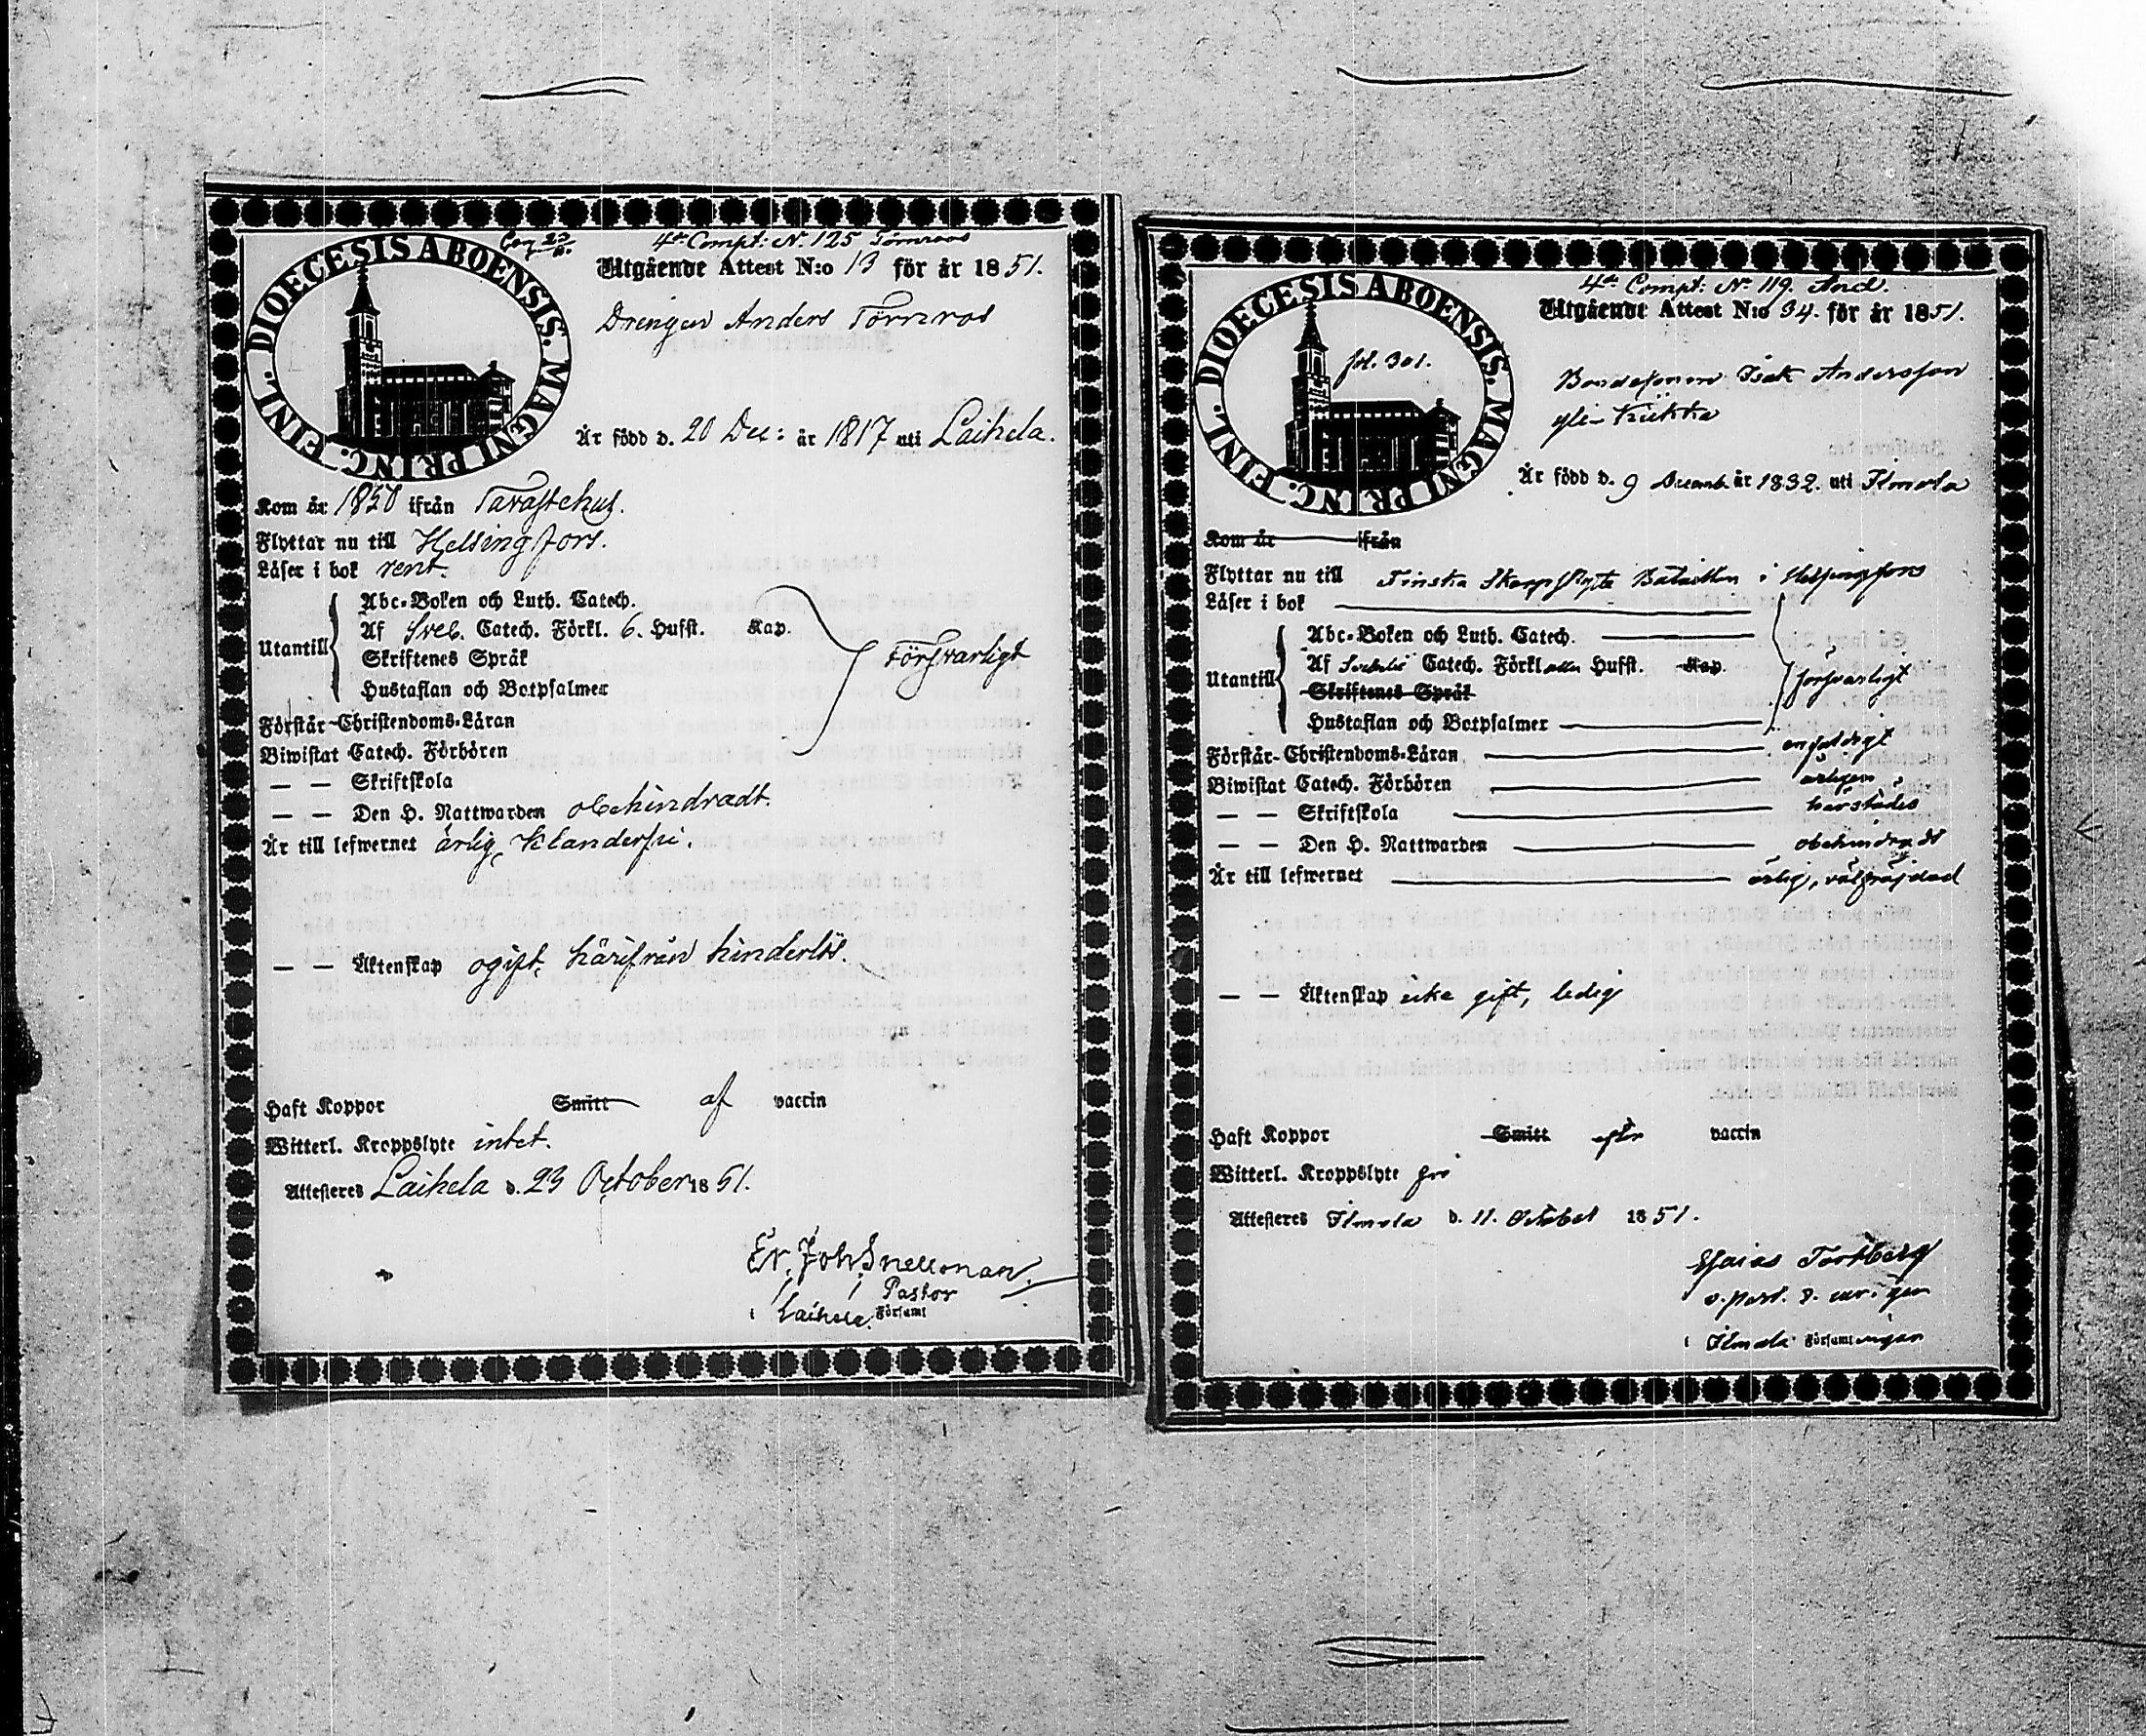 DIOECESIS ABOENSIS. MAGNI PRINC. FINL.
4de Compt: N. 125 Törnroos
Utgående Attest N:o 13 för år 1851.
Drengen Anders Törnros
Är född d. 20 Dec: år 1817 uti Laihela.
Kom år 1850 ifrån Tavastehus.
Flyttar nu till Helsingfors.
Läser i bok rent.
Utantill
Abc-Boken och Luth. Catech.
Af Sveb. Catech. Förkl. 6. Hufst. Kap.
Skriftenes Språk
Hustaflan och Botpsalmer
Försvarligt
Förstår Christendoms-Läran
Biwistat Catech. Förhören
— — Skriftskola
— — Den H. Nattwarden obehindradt.
Är till lefwernet ärlig, klanderfri.
— — Äktenskap ogift, härifrån hinderlös.
Haft Koppor Smitt af vaccin
Witterl. Kroppslyte intet.
Attesteras Laihela d. 23 October 1851.
Er. Joh. Snellman.
Pastor
i Laihela Församl
DIOECESIS ABOENSIS. MAGNI PRINC. FINL.
fol. 301.
4de Compt: No 119. And.
Utgående Attest N:o 94. för år 1851.
Bondesonen Isak Andersson
Yli-
Är född d. 9 Decemb. år 1832. uti Ilmola
Kom år ifrån
Flyttar nu till Finska Skarpskytte Bataillon i Helsingfors
Läser i bok
Utantill
Abc-Boken och Luth. Catech.
Af Svebelii Catech. Förkl Hufst. Kap.
Skriftenes Språk
Hustaflan och Botpsalmer
försvarligt
Förstår Christendoms-Läran enfaldigt
Biwistat Catech. Förhören årligen
— — Skriftskola härstädes
— — Den H. Nattwarden obehindradt
Är till lefwernet ärlig, välfräjdad
— — Äktenskap icke gift, ledig
Haft Koppor Smitt efter vaccin
Witterl. Kroppslyte fri
Attesteras Ilmola d. 11. October 1851.
Esaias
v. past.
i Ilmola Församlingar